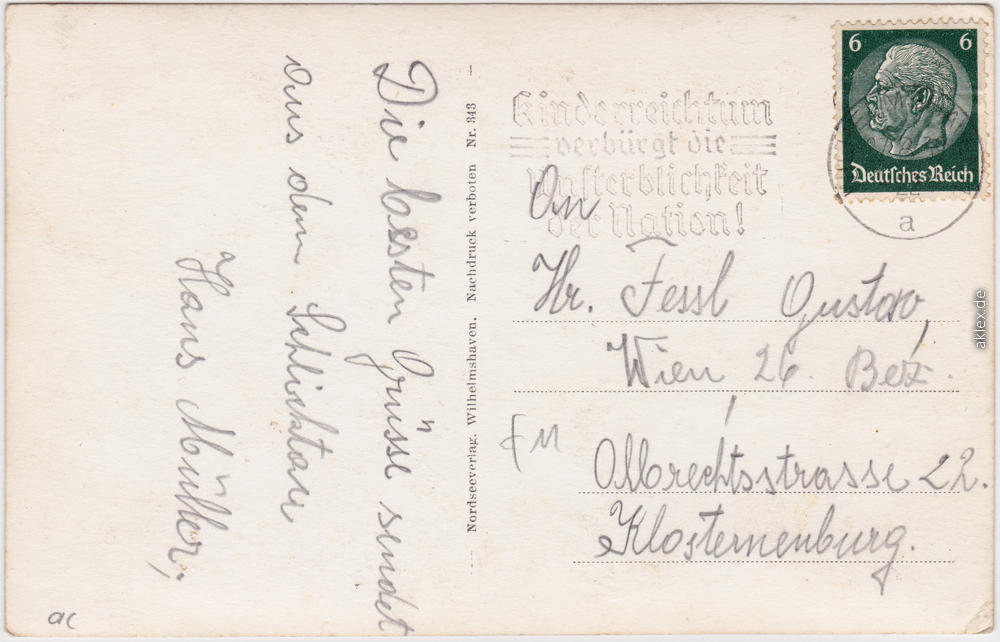 Die besten Grüsse sendet
aus dem
Hans Müller,
Nordseeverlag, Wilhelmshaven. Nachdruck verboten Nr. 343
Kinderreichtum
verbürgt die
Unsterblichkeit
der Nation!
6 6
Deutsches Reich
a
An
Hr. Fessl Gustav,
Wien 26. Bez.
Albrechtsstrasse 22.
Klosterneuburg.
ac
aklex.de